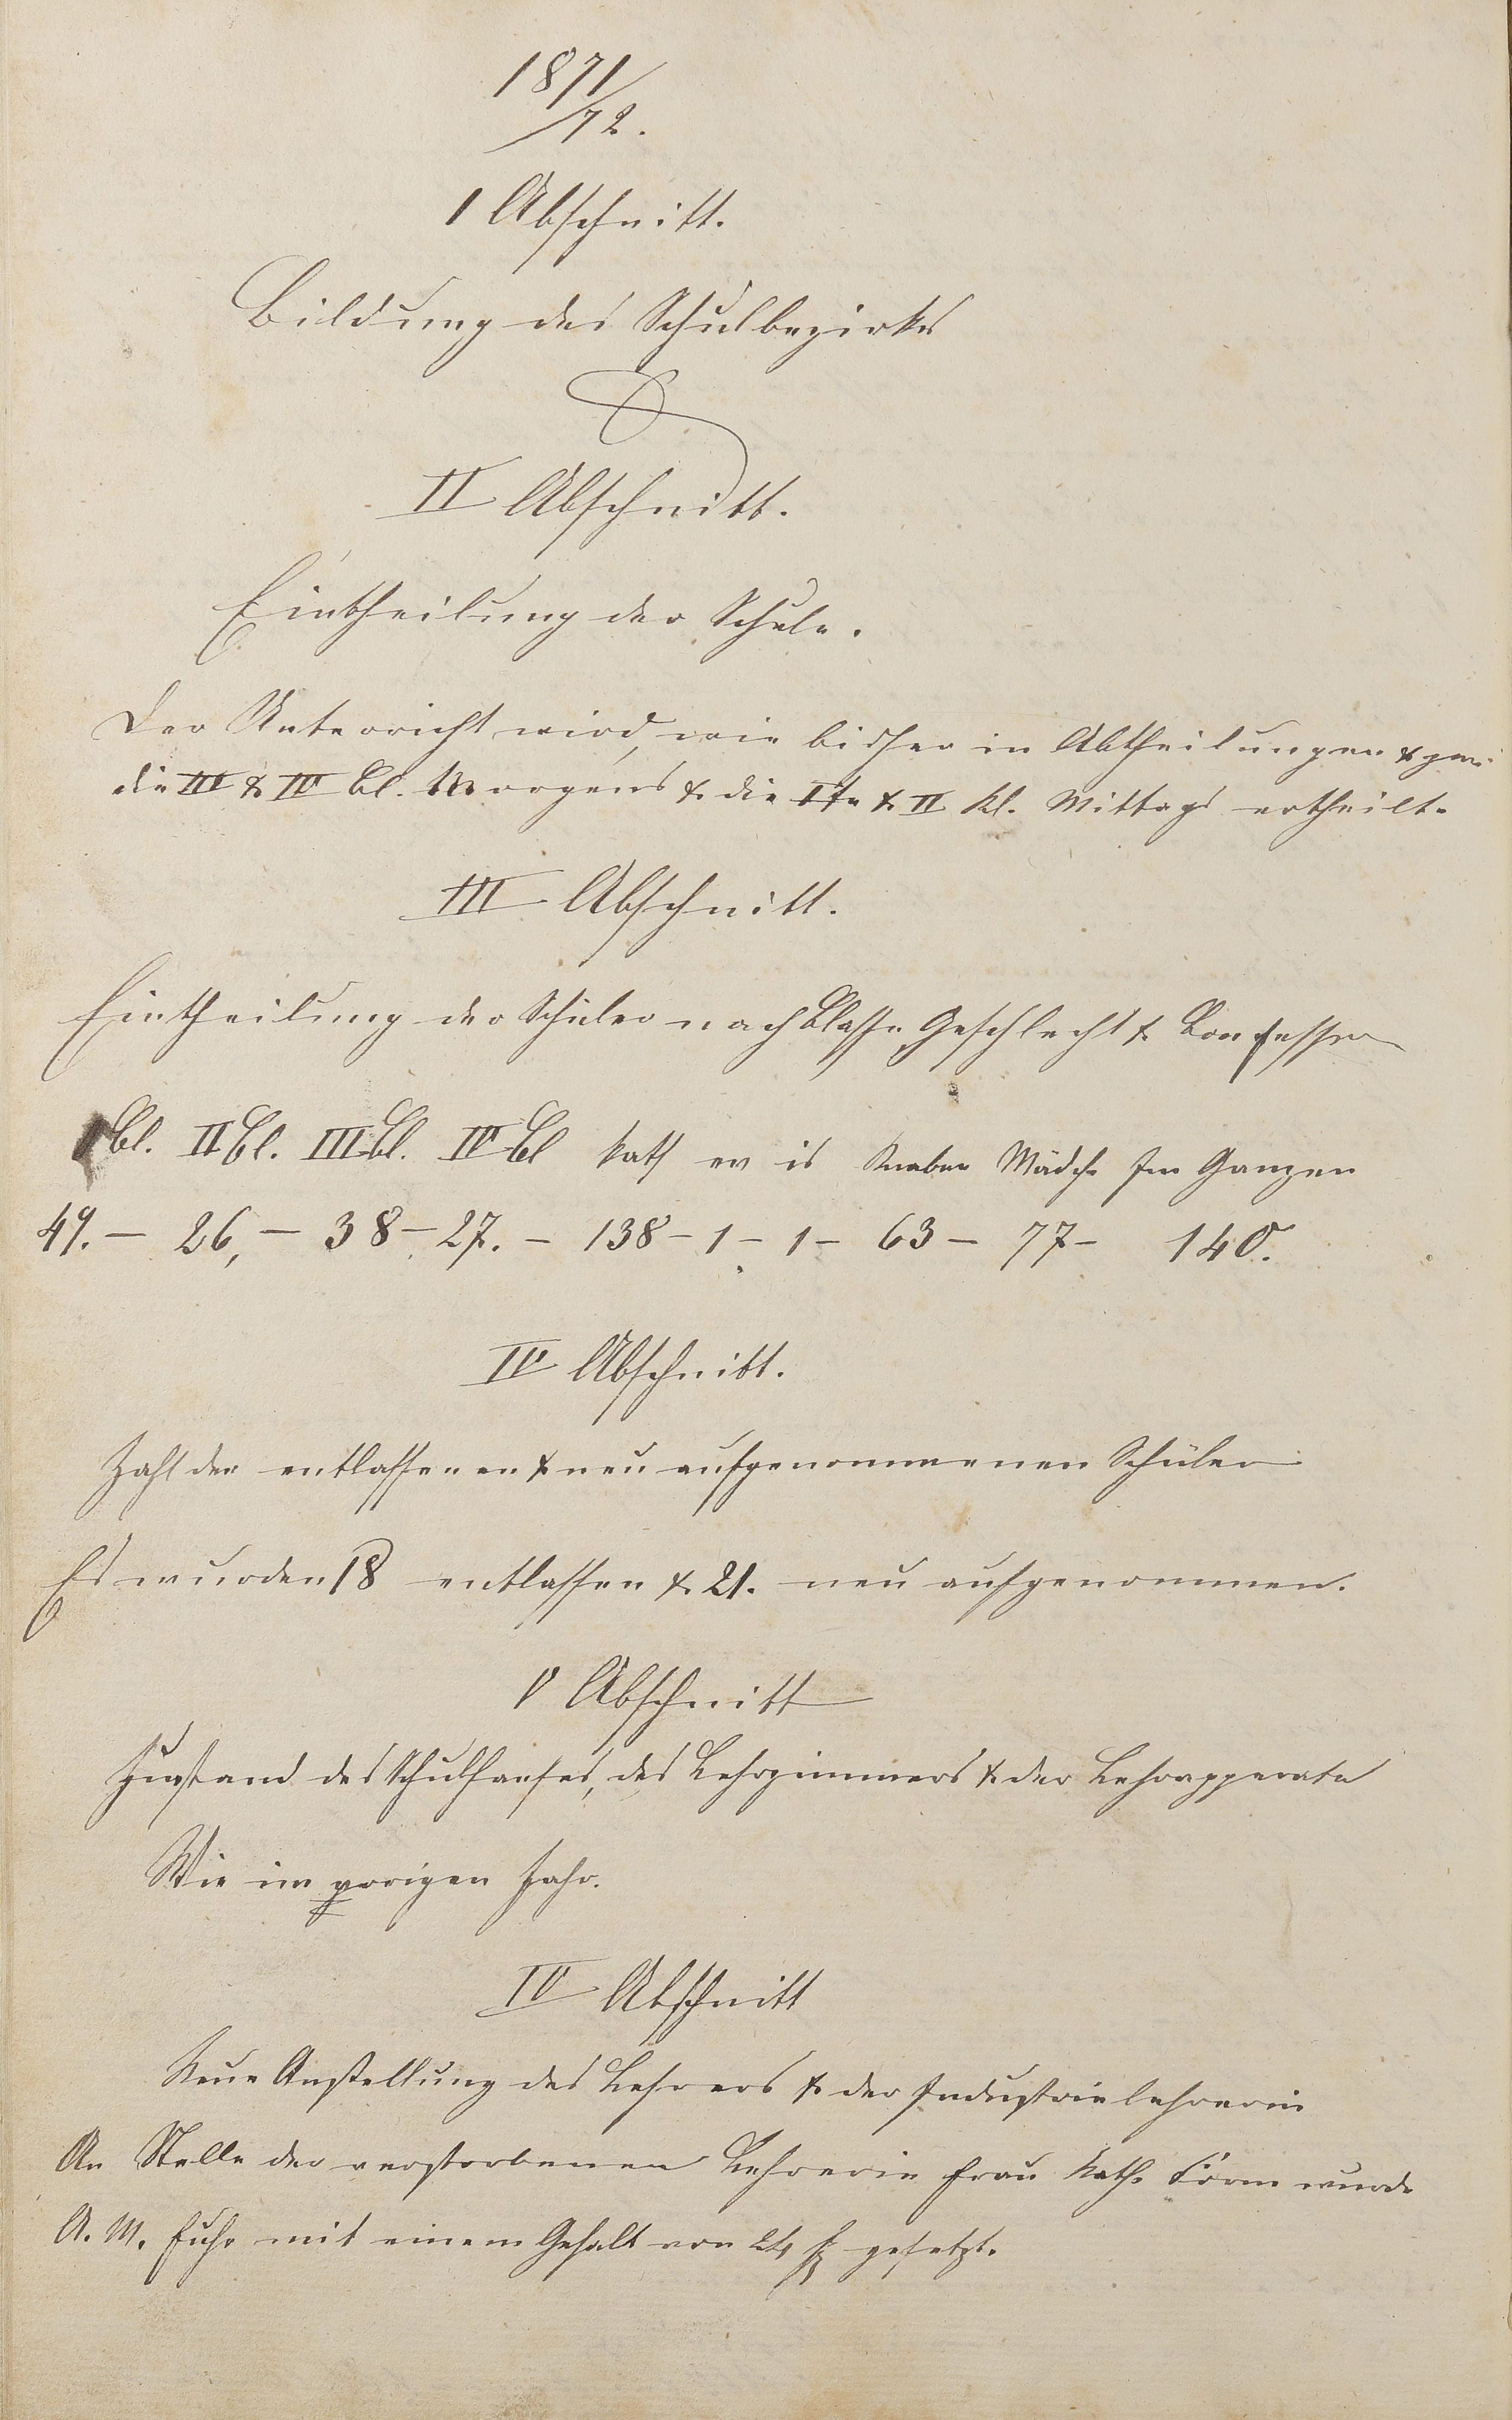 1871
/72.
I Abschnitt.
Bildung des Schulbezirks
II Abschnitt.
Eintheilung der Schule.
Der Unterricht wird, wie bisher in Abtheilungen & zwar
die III & IV Cl. Morgens & die Ite & II Kl. Mittags ertheilt.
III Abschnitt.
Eintheilung der Schüler nach Classe, Geschlecht & Confession
I Cl. II Cl. III Cl. IV Cl kath ev is Knaben Mädch. Im Ganzen
49. – 26, – 38 – 27. – 138 – 1 – 1 – 63 – 77 – 140.
IV Abschnitt.
Zahl der entlassenen & neu aufgenommenen Schüler
Es wurden 18 entlassen & 21. neu aufgenommen.
V Abschnitt
Zustand des Schulhauses, des Lehrzimmers & der Lehrapparate
Wie im vorigen Jahr.
IV Abschnitt
Neue Anstellung des Lehrers & der Industrielehrerin
An Stelle der verstorbenen Lehrerin Frau Kath. wurde
A. M. Fuhr mit einem Gehalt von 24 f gesetzt.